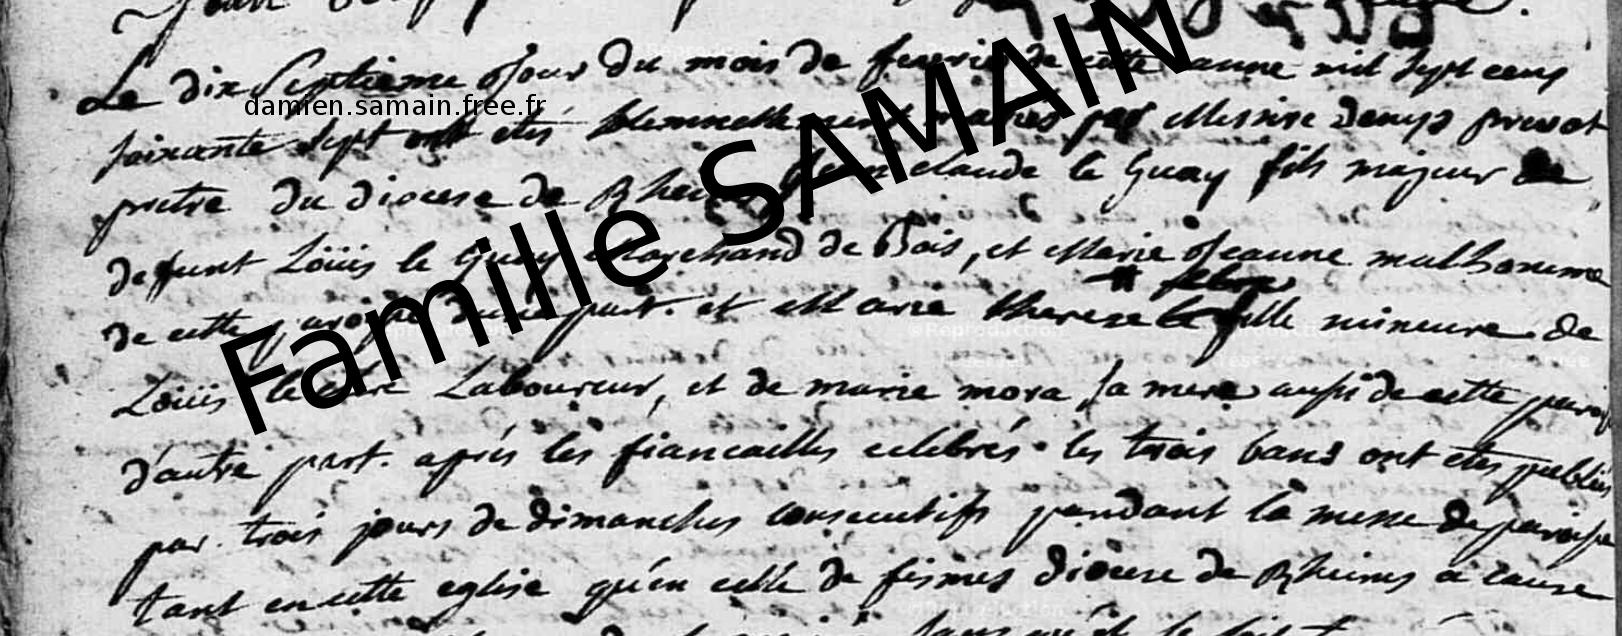 Le dix Septieme Jour du mois de fevrier de cette anne mil sept cens
damien.samain.free.fr
soixante sept ont etés solemnellement mariés par Messire denys prevot
pretre du diocese de Rheims Jean claude le Guay fils majeur de
defunt Loüis le Guay Marchand de Bois, et Marie Jeanne malhomme
Famille SAMAIN
de cette paroisse d'une part. et Marie therese le febre fille mineure de
Loüis lefebre Laboureur, et de marie mora sa mere aussi de cette paroisse
d'autre part. aprés les fiancailles celebrés les trois bans ont etés publiés
par trois jours de dimanches consecutifs pendant la messe de paroisse
tant en cette eglise qu'en celle de fismes diocese de Rheims a cause